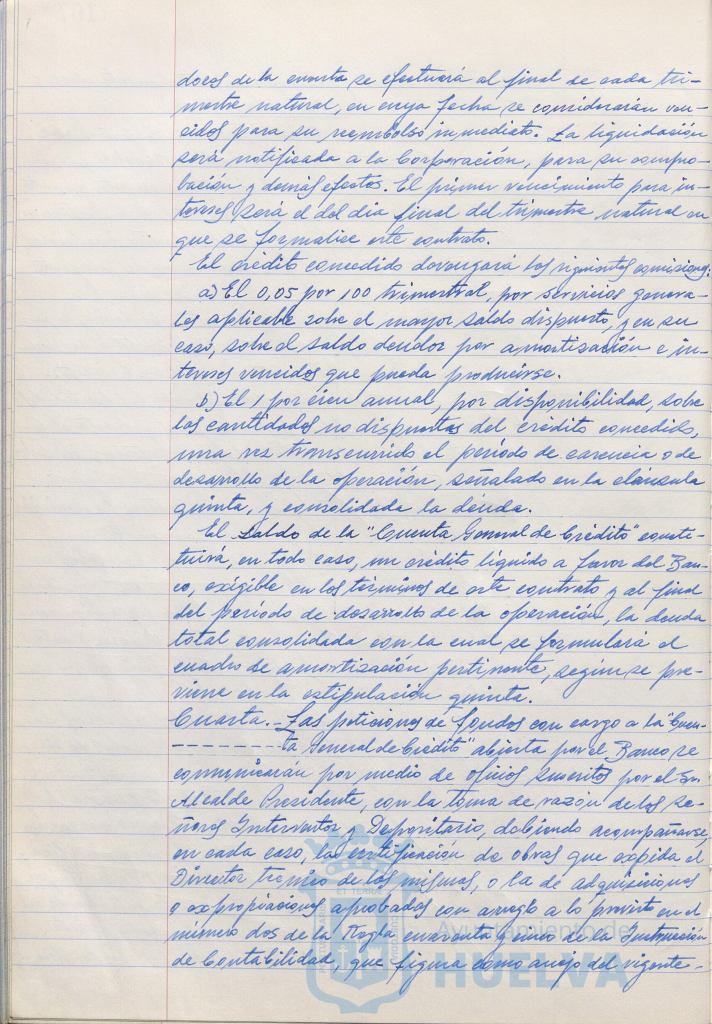 dores de la cuenta se efectuará al final de cada tri-
mestre natural, en cuya fecha se considerarán ven-
cidos para su reembolso inmediato. La liquidación
será notificada a la Corporación, para su compro-
bación y demás efectos. El primer vencimiento para in-
tereses será el del día final del trimestre natural en
que se formalice este contrato.
El crédito concedido devengará las siguientes comisiones:
a) El 0,05 por 100 trimestral, por servicios genera-
les aplicable sobre el mayor saldo dispuesto, y en su
caso, sobre el saldo deudor por amortización e in-
tereses vencidos que pueda producirse.
b) El 1 por cien anual, por disponibilidad, sobre
las cantidades no dispuestas del crédito concedido,
una vez transcurrido el período de carencia o de
desarrollo de la operación, señalado en la cláusula
quinta, y consolidada la deuda.
El saldo de la "Cuenta General de Crédito" consti-
tuirá, en todo caso, un crédito líquido a favor del Ban-
co, exigible en los términos de este contrato y al final
del período de desarrollo de la operación, la deuda
total consolidada con la cual se formulará el
cuadro de amortización pertinente, según se pre-
viene en la estipulación quinta.
Cuarta.- Las peticiones de fondos con cargo a la "Cuen-
- - - - - - - - - ta General de Crédito" abierta por el Banco se
comunicarán por medio de oficios suscritos por el Sr.
Alcalde Presidente, con la toma de razón de los Se-
ñores Interventor y Depositario, debiendo acompañarse,
en cada caso, la certificación de obras que expida el
Director técnico de las mismas, o la de adquisiciones
o expropiaciones aprobadas con arreglo a lo previsto en el
número dos de la Regla cuarenta y cinco de la Instrucción
de Contabilidad, que figura como anejo del vigente-
Ayuntamiento de
HUELVA